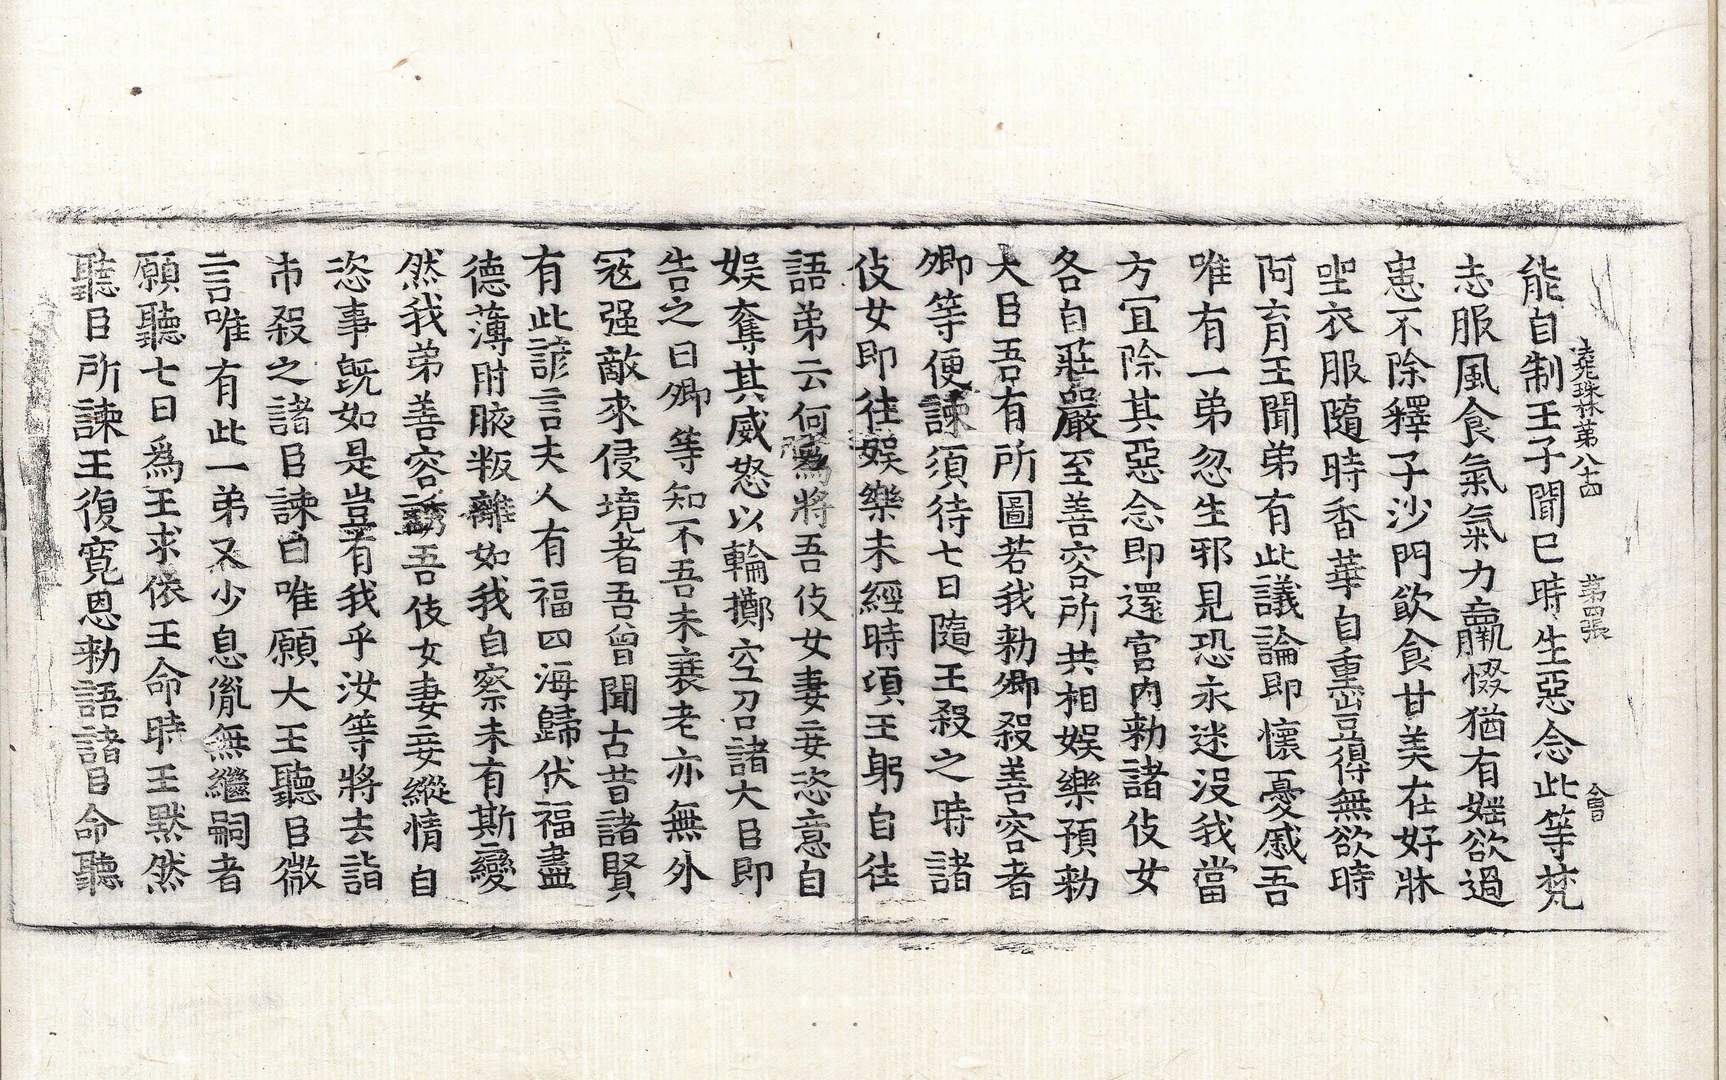 法苑珠林第八十四 第四張 會
能自制王子聞已時生惡念此等梵
志服風食氣氣力羸惙猶有婬欲過
患不除釋子沙門飲食甘美在好牀
坐衣服隨時香華自熏豈得無欲時
阿育王聞弟有此議論即懷憂慼吾
唯有一弟忽生邪見恐永迷沒我當
方宜除其惡念即還宮內勑諸伎女
各自莊嚴至善容所共相娛樂預勑
大臣吾有所圖若我勑卿殺善容者
卿等便諫須待七日隨王殺之時諸
伎女即往娛樂未經時頃王躬自往
語弟云何爲將吾伎女妻妾恣意自
娛奪其威怒以輪擲空召諸大臣即
告之曰卿等知不吾未衰老亦無外
寇强敵來侵境者吾曾聞古昔諸賢
有此諺言夫人有福四海歸伏福盡
德薄肘腋叛離如我自察未有斯變
然我弟善容誘吾伎女妻妾縱情自
恣事旣如是豈有我乎汝等將去詣
市殺之諸臣諫白唯願大王聽臣微
言唯有此一弟又少息胤無繼嗣者
願聽七日爲王求依王命時王默然
聽臣所諫王復寬恩勑語諸臣命聽